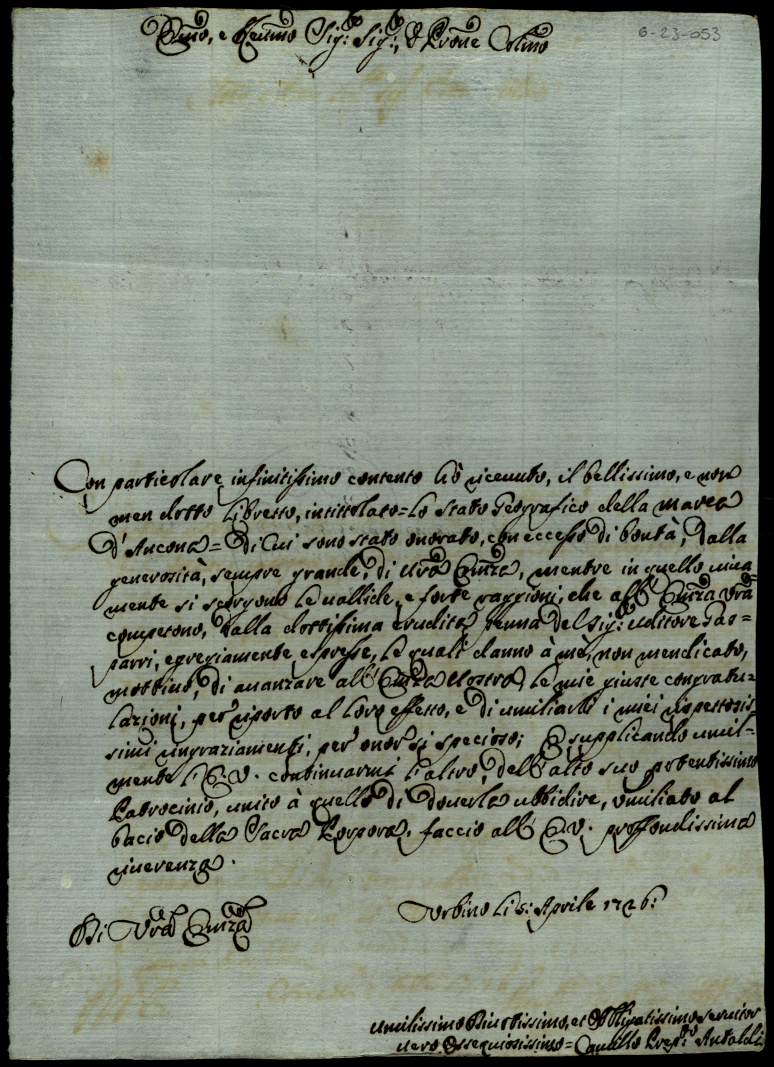 6-23-053
Emo, e Reumo Sig:r Sig:r, e Prone Colmo
Con particolare, infinitissimo contento hò riceuuto, il bellissimo, e non
men dotto libretto, intittolato= Lo stato Geografico della Marca
d'Ancona= Di cui sono stato onorato, con eccesso di bontà, dalla
generosità, sempre grande, di Vra Emza, mentre in quello uiua=
mente si scorgono le uallide, e forte raggioni, che all' Emza Vra
competono, dalla dottissima erudita penna del Sig:r Uditore Gas=
parri, egregiamente espresse, le quali danno à mè, non mendicato,
mottiuo, di auanzare all' Emza Vostra, le mie giuste congratu=
lazioni, per riporto al loro effetto, e di umiliarli i miei rispettosis=
simi ringraziamenti, per onor si specioso; E supplicando umil=
mente l'E.V. continuarmi l'altro, dell'alto suo potentissimo
Patrocinio, unito à quello di douerla ubbidire, umiliato al
bacio della Sacra Porpora, faccio all' E.V. proffondissima
riuerenza.
Urbino li 5: Aprile 1726:
Di Vra Emza
Umilissimo Diuotissimo, et Obbligatissimo seruitor
uero Ossequiosissimo= Camillo Antaldi